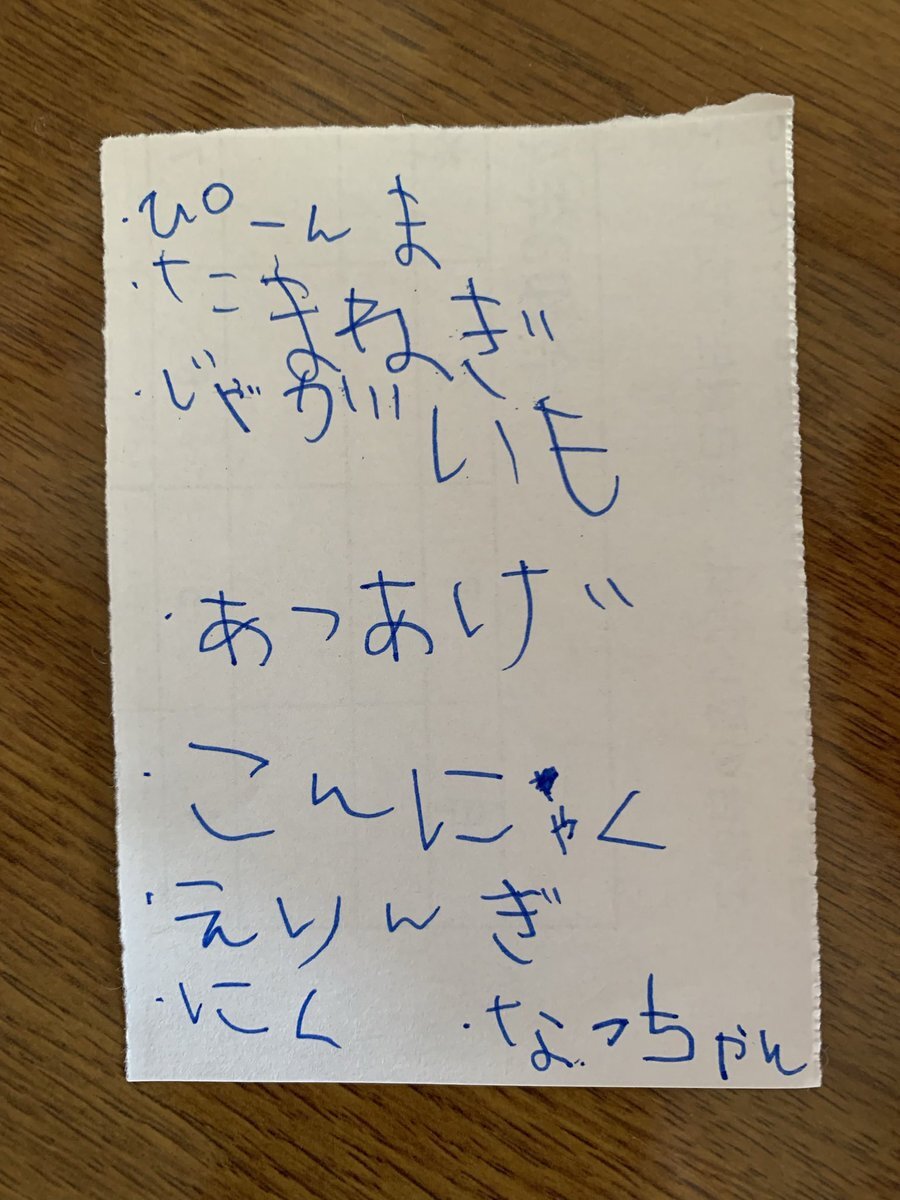 ・ぴーんま
・たまねぎ
・じゃがいも
・あつあげ
・こんにゃく
・えりんぎ
・にく
・なっちゃん